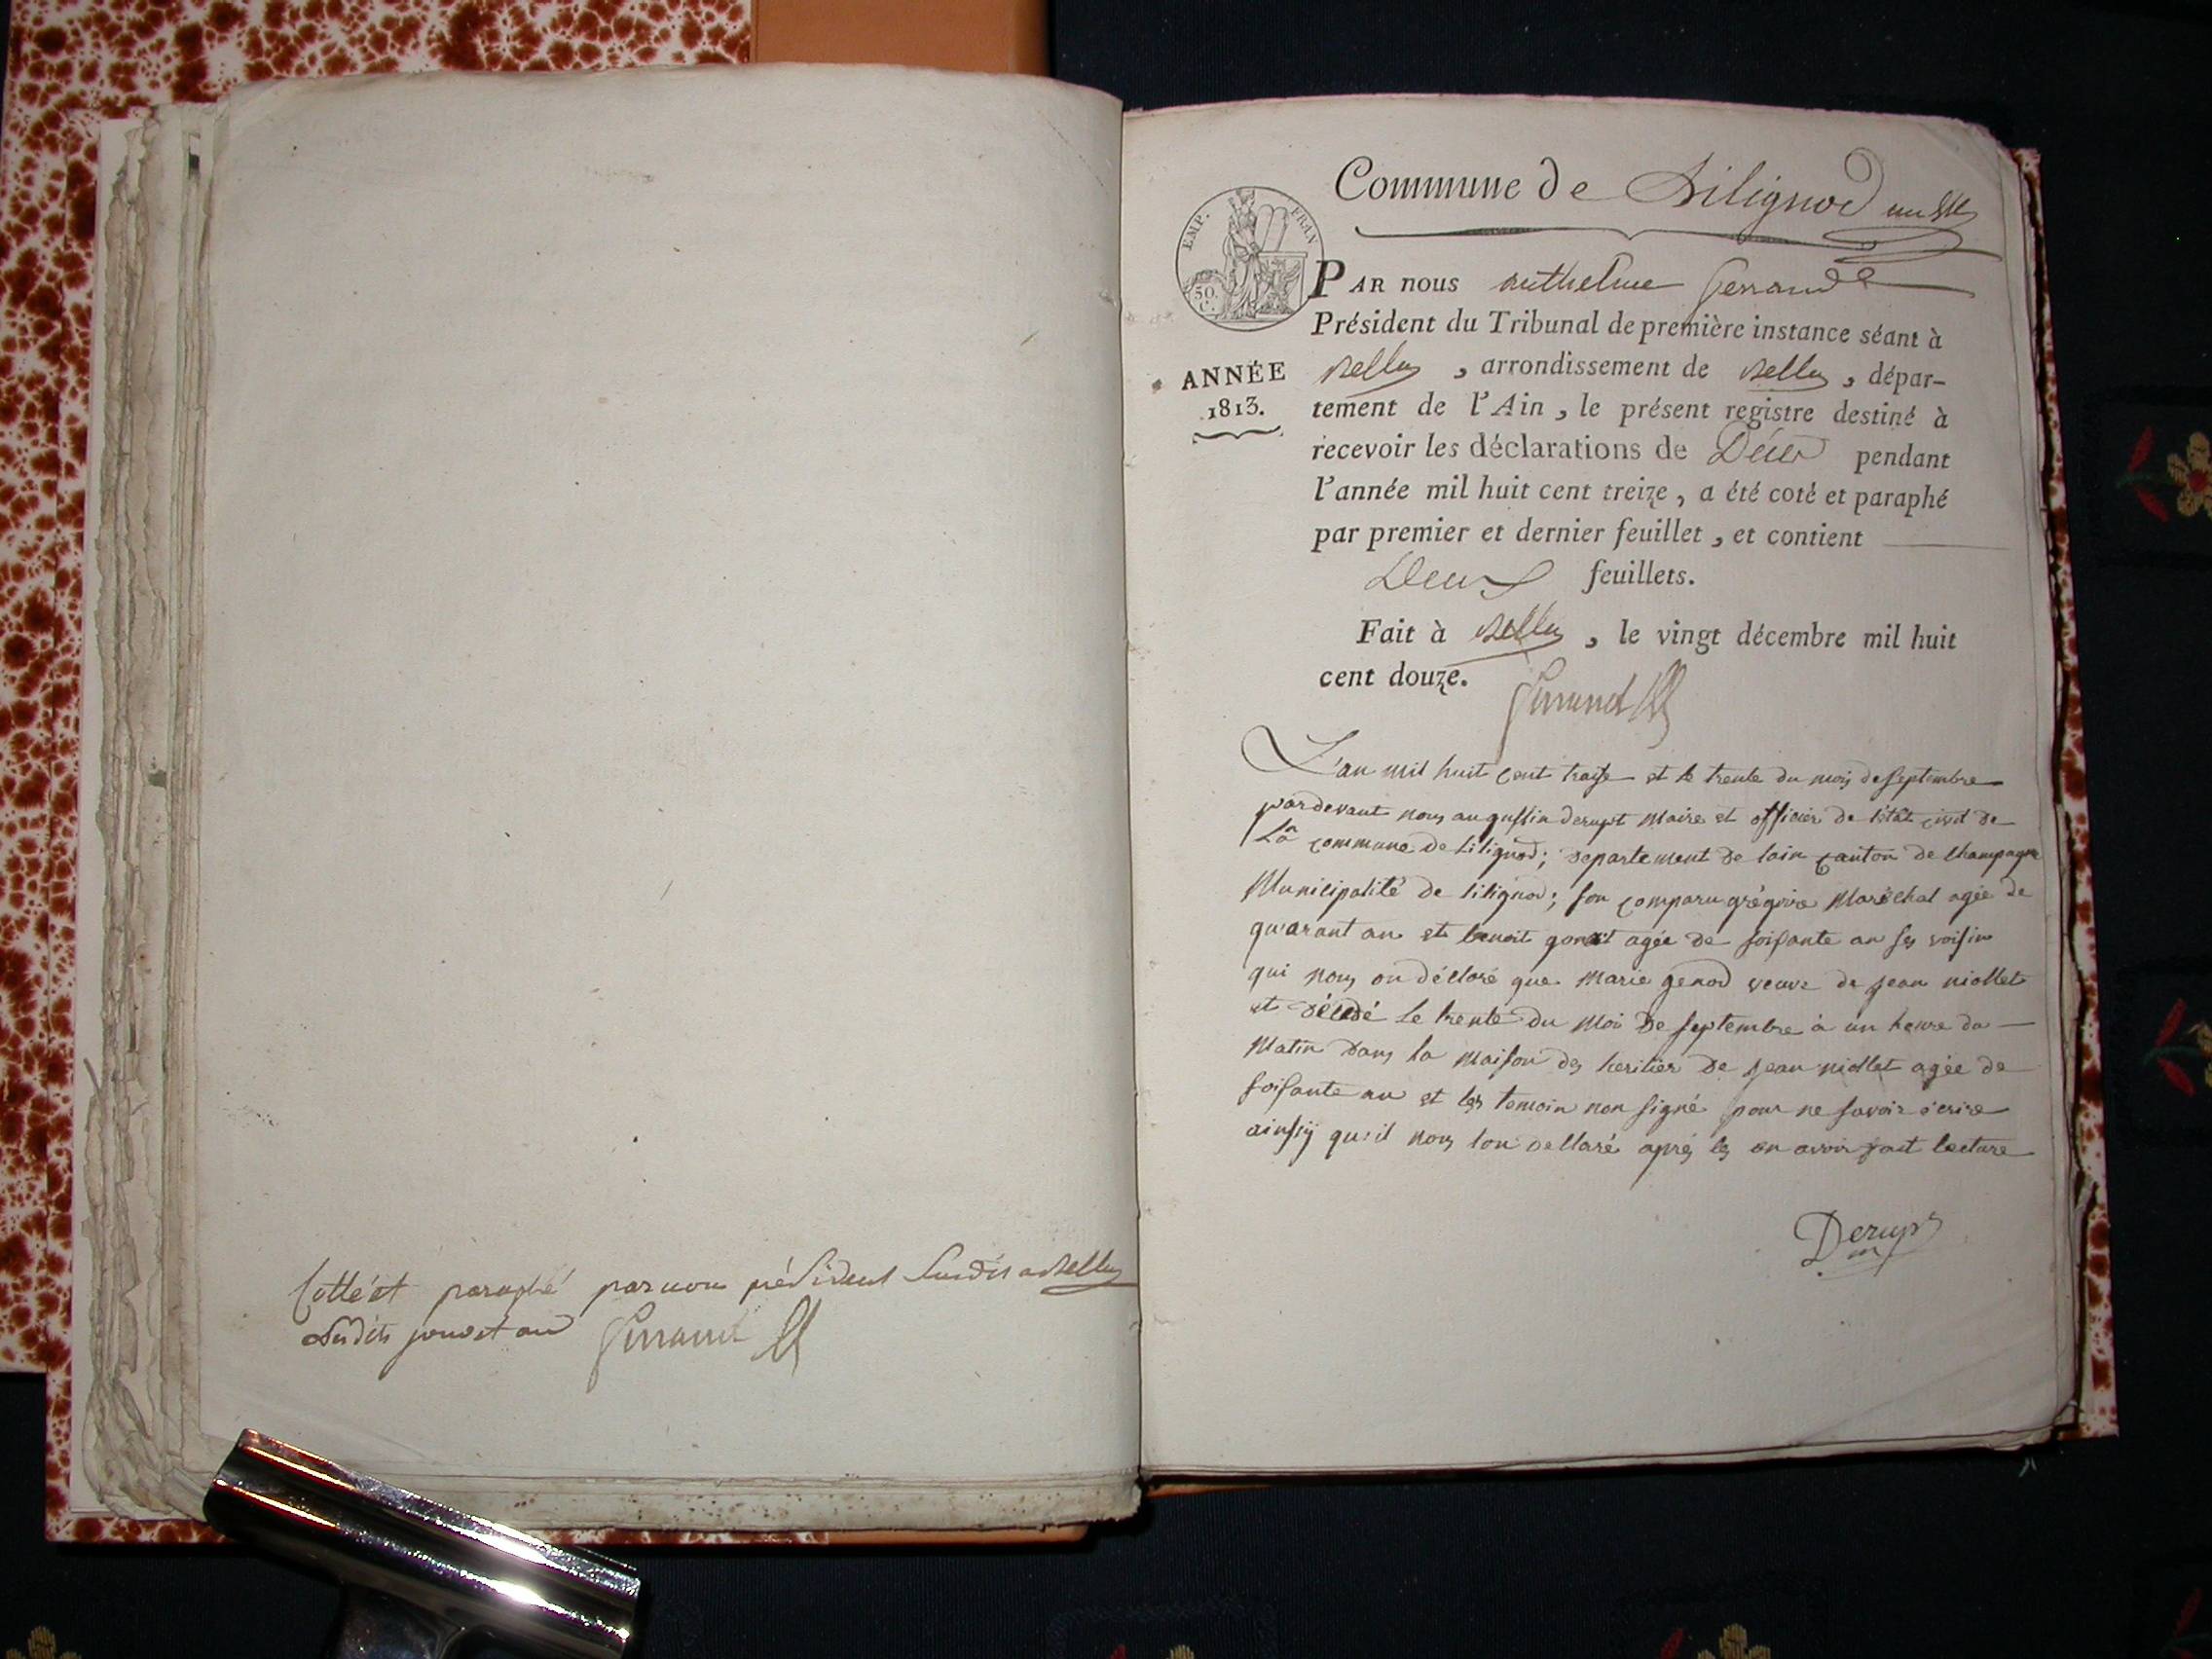 Cotté et paraphé par nous président susdit à Belley
susdits jour et an Gerraud
Commune de Lilignod
EMP. FRAN
50. C.
ANNÉE
1813.
PAR nous anthelme Gerraud
Président du Tribunal de première instance séant à
Belley, arrondissement de Belley, dépar-
tement de l'Ain, le présent registre destiné à
recevoir les déclarations de Décès pendant
l'année mil huit cent treize, a été coté et paraphé
par premier et dernier feuillet, et contient
Deux feuillets.
Fait à Belley, le vingt décembre mil huit
cent douze.
Gerraud
L'an mil huit cent traise et le trente du mois de septembre
pardevant nous augustin derupt Maire et officier de l'état civil de
La commune de lilignod; departement de lain canton de Champagne
Municipalité de lilignod; son comparu grégoire Maréchal agée de
quarant an et benoit gonet agée de soisante an ses voisin
qui nous on déclaré que marie genod veuve de jean niollet
et décédé le trente du moi de septembre à un heure du
Matin dans la maison des heritier de jean niollet agée de
soisante an et les temoin non signé pour ne savoir écrire
ainssÿ qu'il nous lon dellaré aprés les en avoir fait lecture
Derupt